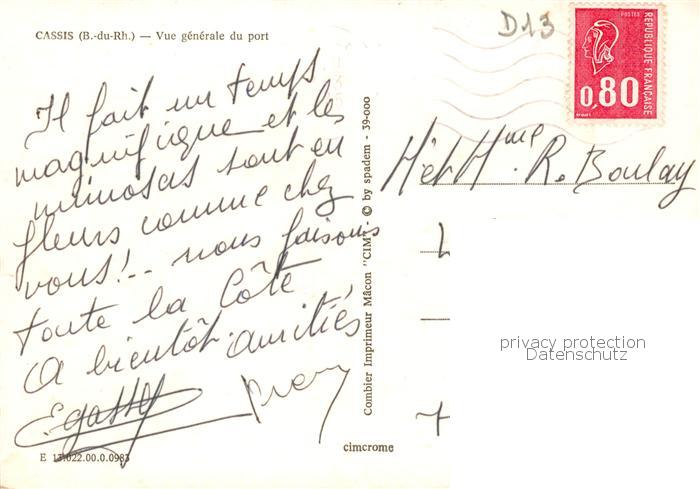 CASSIS (B.-du-Rh.) — Vue générale du port
Il fait un temps
magnifique et les
mimosas sont en
fleurs comme chez
vous!.. nous faisons
toute la Côte
A bientôt. amitiés
E 13.022.00.0.0983
Combier Imprimeur Mâcon "CIM" - © by spadem - 39-000
cimcrome
D13
POSTES
REPUBLIQUE FRANÇAISE
0,80
M et Mme R. Boulay
privacy protection
Datenschutz